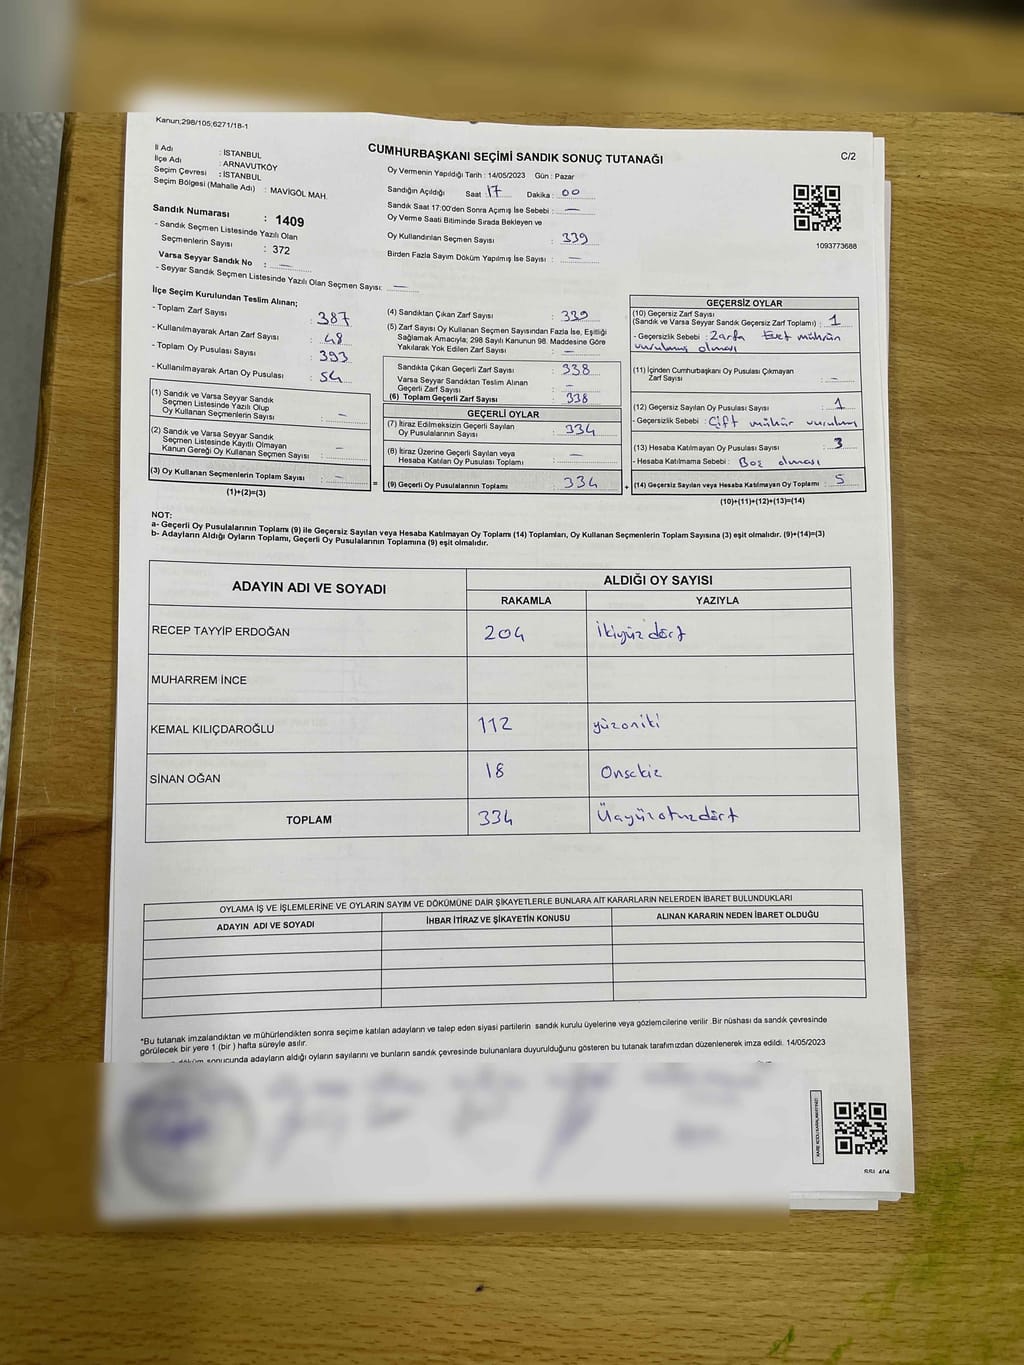 Kanun;298/105;6271/18-1
C/2
CUMHURBAŞKANI SEÇİMİ SANDIK SONUÇ TUTANAĞI
İl Adı : İSTANBUL
İlçe Adı : ARNAVUTKÖY
Seçim Çevresi : İSTANBUL
Seçim Bölgesi (Mahalle Adı) : MAVİGÖL MAH.
Sandık Numarası : 1409
- Sandık Seçmen Listesinde Yazılı Olan
Seçmenlerin Sayısı : 372
Varsa Seyyar Sandık No : —
- Seyyar Sandık Seçmen Listesinde Yazılı Olan Seçmen Sayısı: —
Oy Vermenin Yapıldığı Tarih : 14/05/2023 Gün : Pazar
Sandığın Açıldığı Saat : 17 Dakika : 00
Sandık Saat 17:00'den Sonra Açımış İse Sebebi : —
Oy Verme Saati Bitiminde Sırada Bekleyen ve
Oy Kullandırılan Seçmen Sayısı : 339
Birden Fazla Sayım Döküm Yapılmış İse Sayısı : —
1093773688
İlçe Seçim Kurulundan Teslim Alınan;
- Toplam Zarf Sayısı : 387
- Kullanılmayarak Artan Zarf Sayısı : 48
- Toplam Oy Pusulası Sayısı : 393
- Kullanılmayarak Artan Oy Pusulası : 54
(1) Sandık ve Varsa Seyyar Sandık
Seçmen Listesinde Yazılı Olup
Oy Kullanan Seçmenlerin Sayısı : —
(2) Sandık ve Varsa Seyyar Sandık
Seçmen Listesinde Kayıtlı Olmayan
Kanun Gereği Oy Kullanan Seçmen Sayısı : —
(3) Oy Kullanan Seçmenlerin Toplam Sayısı : —
(1)+(2)=(3)
=
(4) Sandıktan Çıkan Zarf Sayısı : 339
(5) Zarf Sayısı Oy Kullanan Seçmen Sayısından Fazla İse, Eşitliği
Sağlamak Amacıyla; 298 Sayılı Kanunun 98. Maddesine Göre
Yakılarak Yok Edilen Zarf Sayısı : —
Sandıkta Çıkan Geçerli Zarf Sayısı : 338
Varsa Seyyar Sandıktan Teslim Alınan
Geçerli Zarf Sayısı : —
(6) Toplam Geçerli Zarf Sayısı : 338
GEÇERLİ OYLAR
(7) İtiraz Edilmeksizin Geçerli Sayılan
Oy Pusulalarının Sayısı : 334
(8) İtiraz Üzerine Geçerli Sayılan veya
Hesaba Katılan Oy Pusulası Toplamı : —
(9) Geçerli Oy Pusulalarının Toplamı : 334
+
GEÇERSİZ OYLAR
(10) Geçersiz Zarf Sayısı
(Sandık ve Varsa Seyyar Sandık Geçersiz Zarf Toplamı) : 1
- Geçersizlik Sebebi : Zarfa Evet mührün
vurulmuş olması
(11) İçinden Cumhurbaşkanı Oy Pusulası Çıkmayan
Zarf Sayısı : —
(12) Geçersiz Sayılan Oy Pusulası Sayısı : 1
- Geçersizlik Sebebi : Çift mühür vurulum
(13) Hesaba Katılmayan Oy Pusulası Sayısı : 3
- Hesaba Katılmama Sebebi : Boş olması
(14) Geçersiz Sayılan veya Hesaba Katılmayan Oy Toplamı : 5
(10)+(11)+(12)+(13)=(14)
NOT:
a- Geçerli Oy Pusulalarının Toplamı (9) ile Geçersiz Sayılan veya Hesaba Katılmayan Oy Toplamı (14) Toplamları, Oy Kullanan Seçmenlerin Toplam Sayısına (3) eşit olmalıdır. (9)+(14)=(3)
b- Adayların Aldığı Oyların Toplamı, Geçerli Oy Pusulalarının Toplamına (9) eşit olmalıdır.
ADAYIN ADI VE SOYADI
ALDIĞI OY SAYISI
RAKAMLA YAZIYLA
RECEP TAYYİP ERDOĞAN 204 İkiyüzdört
MUHARREM İNCE
KEMAL KILIÇDAROĞLU 112 yüzoniki
SİNAN OĞAN 18 Onsekiz
TOPLAM 334 Üçyüzotuzdört
OYLAMA İŞ VE İŞLEMLERİNE VE OYLARIN SAYIM VE DÖKÜMÜNE DAİR ŞİKAYETLERLE BUNLARA AİT KARARLARIN NELERDEN İBARET BULUNDUKLARI
ADAYIN ADI VE SOYADI İHBAR İTİRAZ VE ŞİKAYETİN KONUSU ALINAN KARARIN NEDEN İBARET OLDUĞU
*Bu tutanak imzalandıktan ve mühürlendikten sonra seçime katılan adayların ve talep eden siyasi partilerin sandık kurulu üyelerine veya gözlemcilerine verilir .Bir nüshası da sandık çevresinde
görülecek bir yere 1 (bir ) hafta süreyle asılır.
döküm sonucunda adayların aldığı oyların sayılarını ve bunların sandık çevresinde bulunanlara duyurulduğunu gösteren bu tutanak tarafımızdan düzenlenerek imza edildi. 14/05/2023